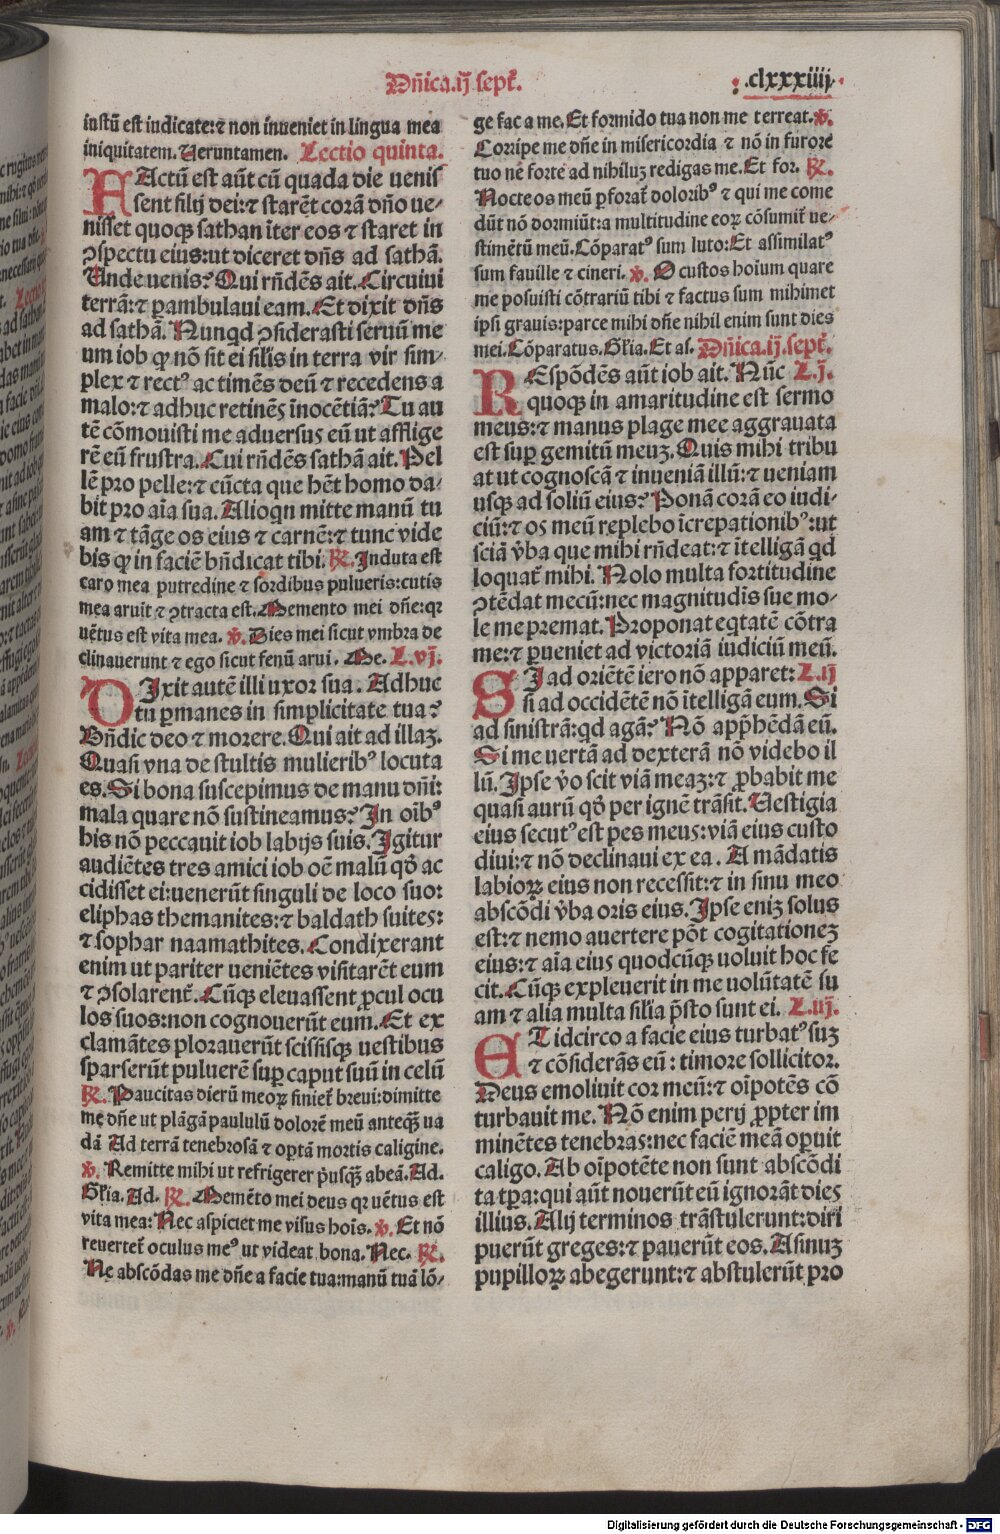 Dñica.ij sept̃.
.clxxxiiij.
iustũ est iudicate:⁊ non inueniet in lingua mea
iniquitatem. Veruntamen. Lectio quinta.
FActũ est aũt cũ quada die venis
sent filij dei:⁊ starẽt corã dño ue-
nisset quoqꝫ sathan ĩter eos ⁊ staret in
ꝯspectu eius:ut diceret dñs ad sathã.
Unde uenis? Qui rñdẽs ait. Circuiui
terrã:⁊ ꝑambulaui eam. Et dixit dñs
ad sathã. Nunqd ꝯsiderasti seruũ me
um iob qꝫ nõ sit ei sĩlis in terra vir sim-
plex ⁊ rectꝰ ac timẽs deũ ⁊ recedens a
malo:⁊ adhuc retinẽs ĩnocẽtiã? Tu au
tẽ cõmouisti me aduersus eũ ut afflige
rẽ eũ frustra. Cui rñdẽs sathã ait. Pel
lẽ pro pelle:⁊ cũcta que hẽt homo da-
bit pro aĩa sua. Alioqn mitte manũ tu
am ⁊ tãge os eius ⁊ carnẽ:⁊ tunc vide
bis qꝫ in faciẽ bñdicat tibi. ℟. Induta est
caro mea putredine ⁊ sordibus pulueris:cutis
mea aruit ⁊ ꝯtracta est. Memento mei dñe:qꝛ
uẽtus est vita mea. ℣. Dies mei sicut vmbra de
clinauerunt ⁊ ego sicut fenũ arui. Me. L.vj.
DIxit autẽ illi uxor sua. Adhuc
tu ꝑmanes in simplicitate tua?
Bñdic deo ⁊ morere. Qui ait ad illaꝫ.
Quasi vna de stultis mulieribꝰ locuta
es. Si bona suscepimus de manu dñi:
mala quare nõ sustineamus? In oĩbꝰ
his nõ peccauit iob labijs suis. Igitur
audiẽtes tres amici iob oẽ malũ qđ ac
cidisset ei:uenerũt singuli de loco suo:
eliphas themanites:⁊ baldath suites:
⁊ sophar naamathites. Condixerant
enim ut pariter ueniẽtes visitarẽt eum
⁊ ꝯsolarent̃. Cũqꝫ eleuassent ꝓcul ocu
los suos:non cognouerũt eum. Et ex
clamãtes plorauerũt scissisqꝫ uestibus
sparserũt puluerẽ suꝑ caput suũ in celũ
℟. Paucitas dierũ meoꝝ finiet̃ breui:dimitte
me dñe ut plãgã paululũ dolorẽ meũ anteqꝫ ua
dã Ad terrã tenebrosã ⁊ optã mortis caligine.
℣. Remitte mihi ut refrigerer p̃usqꝫ abeã. Ad.
Gl̃ia. Ad. ℟. Memẽto mei deus qꝛ uẽtus est
vita mea: Nec aspiciet me visus hoĩs. ℣. Et nõ
reuertet̃ oculus meꝰ ut videat bona. Nec. ℟.
Ne abscõdas me dñe a facie tua:manũ tuã lõ-
ge fac a me. Et formido tua non me terreat. ℣.
Corripe me dñe in misericordia ⁊ nõ in furore
tuo ne forte ad nihiluꝫ redigas me. Et for. ℟.
Nocte os meũ ꝑforat̃ doloribꝰ ⁊ qui me come
dũt nõ dormiũt:a multitudine eoꝝ cõsumit̃ ue-
stimẽtũ meũ. Cõparatꝰ sum luto: Et assimilatꝰ
sum fauille ⁊ cineri. ℣. O custos hoĩum quare
me posuisti cõtrariũ tibi ⁊ factus sum mihimet
ipsi grauis:parce mihi dñe nihil enim sunt dies
mei. Cõparatus. Gl̃ia. Et as. Dñica.ij.sept̃.
REspõdẽs aũt iob ait. Nũc L.j.
quoqꝫ in amaritudine est sermo
meus:⁊ manus plage mee aggrauata
est suꝑ gemitũ meuꝫ. Quis mihi tribu
at ut cognoscã ⁊ inueniã illũ:⁊ ueniam
usqꝫ ad soliũ eius? Ponã corã eo iudi-
ciũ:⁊ os meũ replebo ĩcrepationibꝰ:ut
sciã v̾ba que mihi rñdeat:⁊ ĩtelligã qd
loquat̃ mihi. Nolo multa fortitudine
ꝯtẽdat mecũ:nec magnitudĩs sue mo-
le me premat. Proponat eqtatẽ cõtra
me:⁊ ꝑueniet ad victoriã iudiciũ meũ.
SI ad oriẽtẽ iero nõ apparet: L.ij
si ad occidẽtẽ nõ ĩtelligã eum. Si
ad sinistrã:qd agã? Nõ app̃hẽdã eũ.
Si me uertã ad dexterã nõ videbo il
lũ. Ipse v̾o scit viã meaꝫ:⁊ ꝓbabit me
quasi aurũ qđ per ignẽ trãsit. Vestigia
eius secutꝰ est pes meus:viã eius custo
diui:⁊ nõ declinaui ex ea. A mãdatis
labioꝝ eius non recessi:⁊ in sinu meo
abscõdi v̾ba oris eius. Ipse eniꝫ solus
est:⁊ nemo auertere põt cogitationeꝫ
eius:⁊ aĩa eius quodcũqꝫ uoluit hoc fe
cit. Cũqꝫ expleuerit in me uolũtatẽ su
am ⁊ alia multa sĩlia p̃sto sunt ei. L.iij.
ET idcirco a facie eius turbatꝰ suꝫ
⁊ cõsiderãs eũ: timore sollicitor.
Deus emoliuit cor meũ:⁊ oĩpotẽs cõ
turbauit me. Nõ enim perij ꝓpter im
minẽtes tenebras:nec faciẽ meã oꝑuit
caligo. Ab oĩpotẽte non sunt abscõdi
ta tꝑa:qui aũt nouerũt eũ ignorãt dies
illius. Alij terminos trãstulerunt:diri
puerũt greges:⁊ pauerũt eos. Asinuꝫ
pupilloꝝ abegerunt:⁊ abstulerũt pro
Digitalisierung gefördert durch die Deutsche Forschungsgemeinschaft - DFG